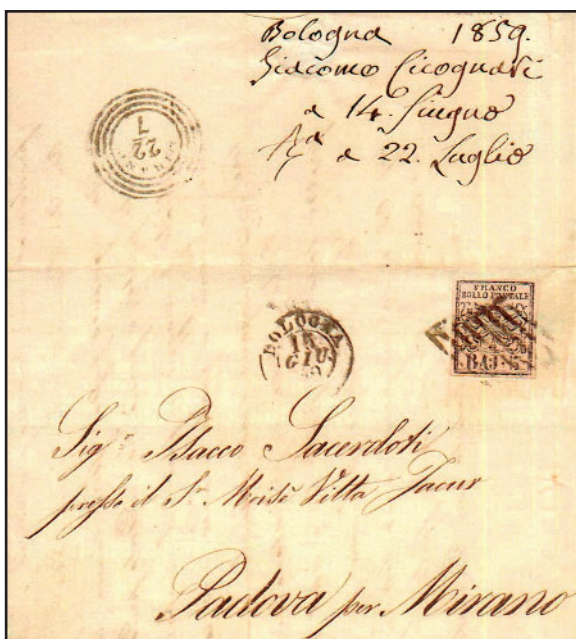 Bologna 1859.
Giacomo Cicognari
a 14. Giugno
a 22. Luglio
22
7
FRANCO
BOLLO POSTALE
BAJ. 5
BOLOGNA
GIU
Sig.r Isacco Sacerdoti
presso il Sr. Moisè Vitta Jacur
Padova per Mirano